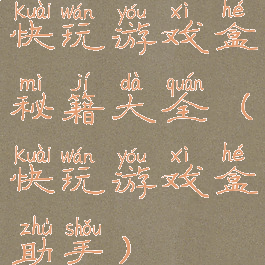 kuài wán yóu xì hé
快玩游戏盒
mì jí dà quán
秘籍大全（
kuài wán yóu xì hé
快玩游戏盒
zhù shǒu
助手）